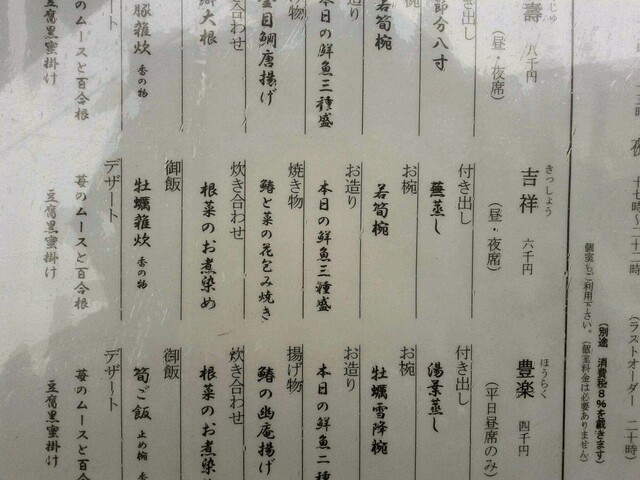 (ラストオーダー 二十時)
(別途 消費税8%を戴きます)
個室もご利用下さい。(個室料金は必要ありません)
寿 八千円
(昼・夜席)
付き出し
節分八寸
お椀
若筍椀
お造り
本日の鮮魚三種盛
揚げ物
金目鯛唐揚げ
炊き合わせ
大根
豚雑炊 香の物
デザート
苺のムースと百合根
豆腐黒蜜掛け
きっしょう
吉祥 六千円
(昼・夜席)
付き出し
蕪蒸し
お椀
若筍椀
お造り
本日の鮮魚三種盛
焼き物
鰆と菜の花包み焼き
炊き合わせ
根菜のお煮染め
御飯
牡蠣雑炊 香の物
デザート
苺のムースと百合根
豆腐黒蜜掛け
ほうらく
豊楽 四千円
(平日昼席のみ)
付き出し
湯葉蒸し
お椀
牡蠣雪降椀
お造り
本日の鮮魚二種
揚げ物
鰆の幽庵揚げ
炊き合わせ
根菜のお煮染め
御飯
筍ご飯 止め椀 香
デザート
苺のムースと百合
豆腐黒蜜掛け